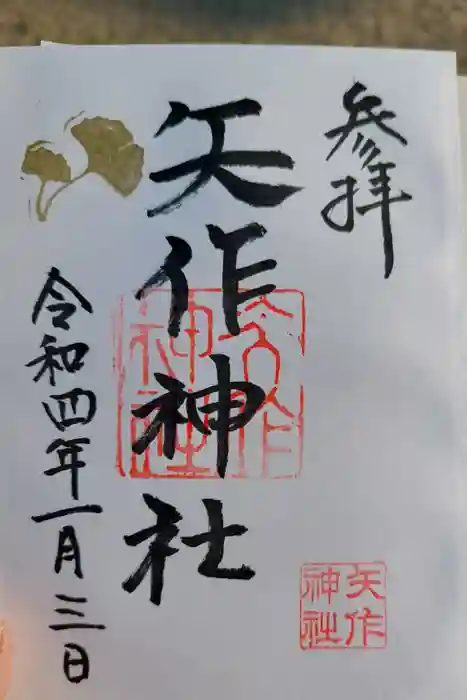 参拝
矢作神社
令和四年一月三日
矢作
神社
矢作
神社